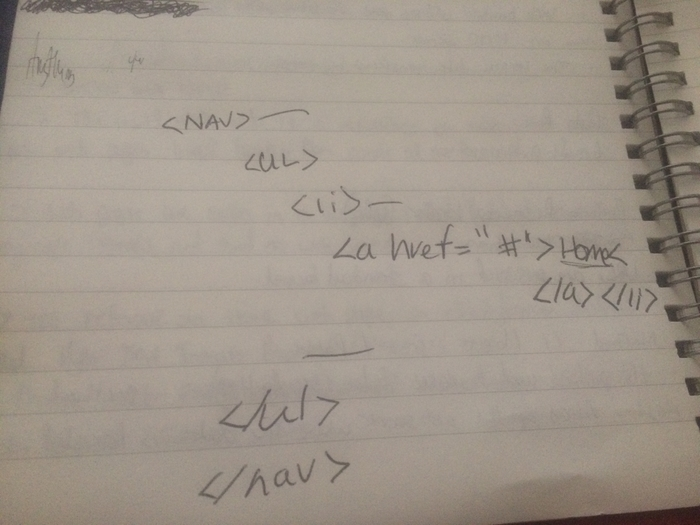 <NAV>
<UL>
<li>
<a href="#">Home
</a></li>
</ul>
</nav>